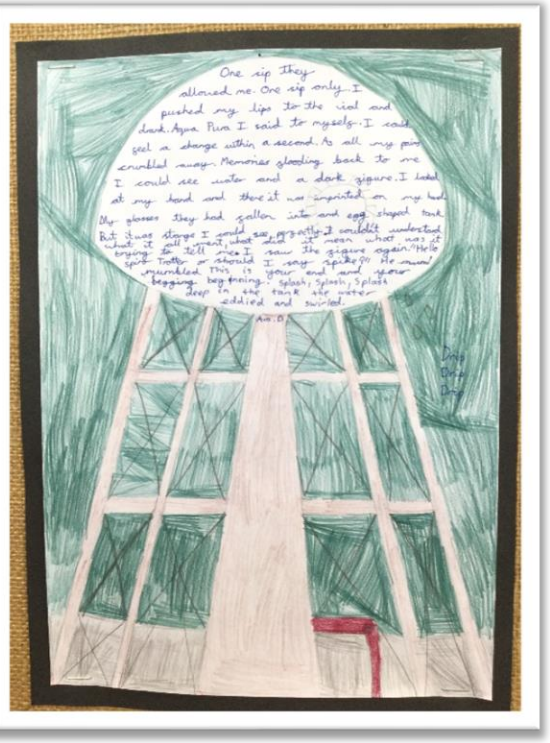 One sip they
allowed me. One sip only. I
pushed my lips to the vial and
drank. Aqua Pura I said to myself. I could
feel a change within a second. As all my pain
crumbled away. Memories flooding back to me
I could see water and a dark figure. I looked
at my hand and there it was imprinted on my hand
My glasses they had fallen into and egg shaped tank
But it was strange I could see perfectly I couldn't understand
what it all ment, what did it mean what was it
trying to tell me. I saw the figure again. "Hello
Spiro Trotter or should I say spike?!" He
mumbled This is your end and your
begging beg nning. Splash, Splash, Splash
deep in the tank the water
eddied and swirled.
Ava.D
Drip
Drip
Drip